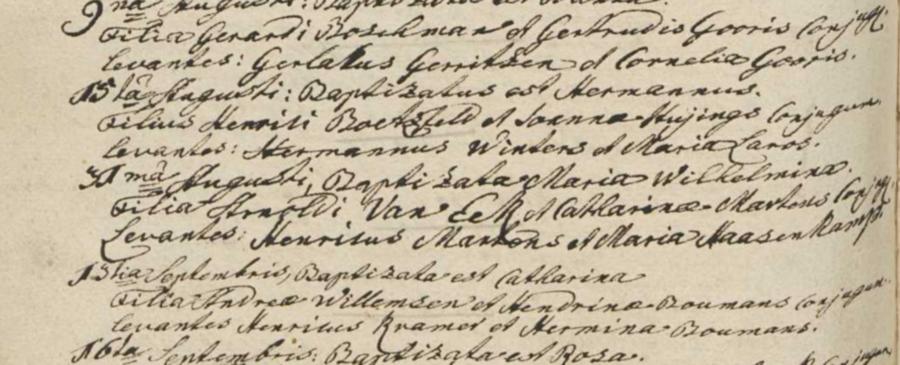 9na Augusti: Baptizata est Anna.
Filia Gerardi Boschman et Gertrudis Gooris Conjug.
Levantes: Gerlakus Gerritsen et Cornelia Gooris.
15ta Augusti: Baptizatus est Hermannus.
Filius Henrici Bocksfeld et Joannæ Huijings Conjugum.
Levantes: Hermannus Winters et Maria Laros.
31ma Augusti, Baptizata Maria Wilhelmina.
Filia Arnoldi Van Eck et Catharinæ Martens Conjug.
Levantes: Henricus Martens et Maria Haasenkamp.
13tia Septembris, Baptizata est Catharina
Filia Andreæ Willemsen et Hendrinæ Boumans Conjugum.
Levantes Henricus Kramer et Hermina Boumans.
16ta Septembris: Baptizata est Rosa.